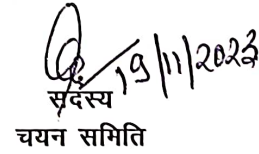 19/11/2023
सदस्य
चयन समिति